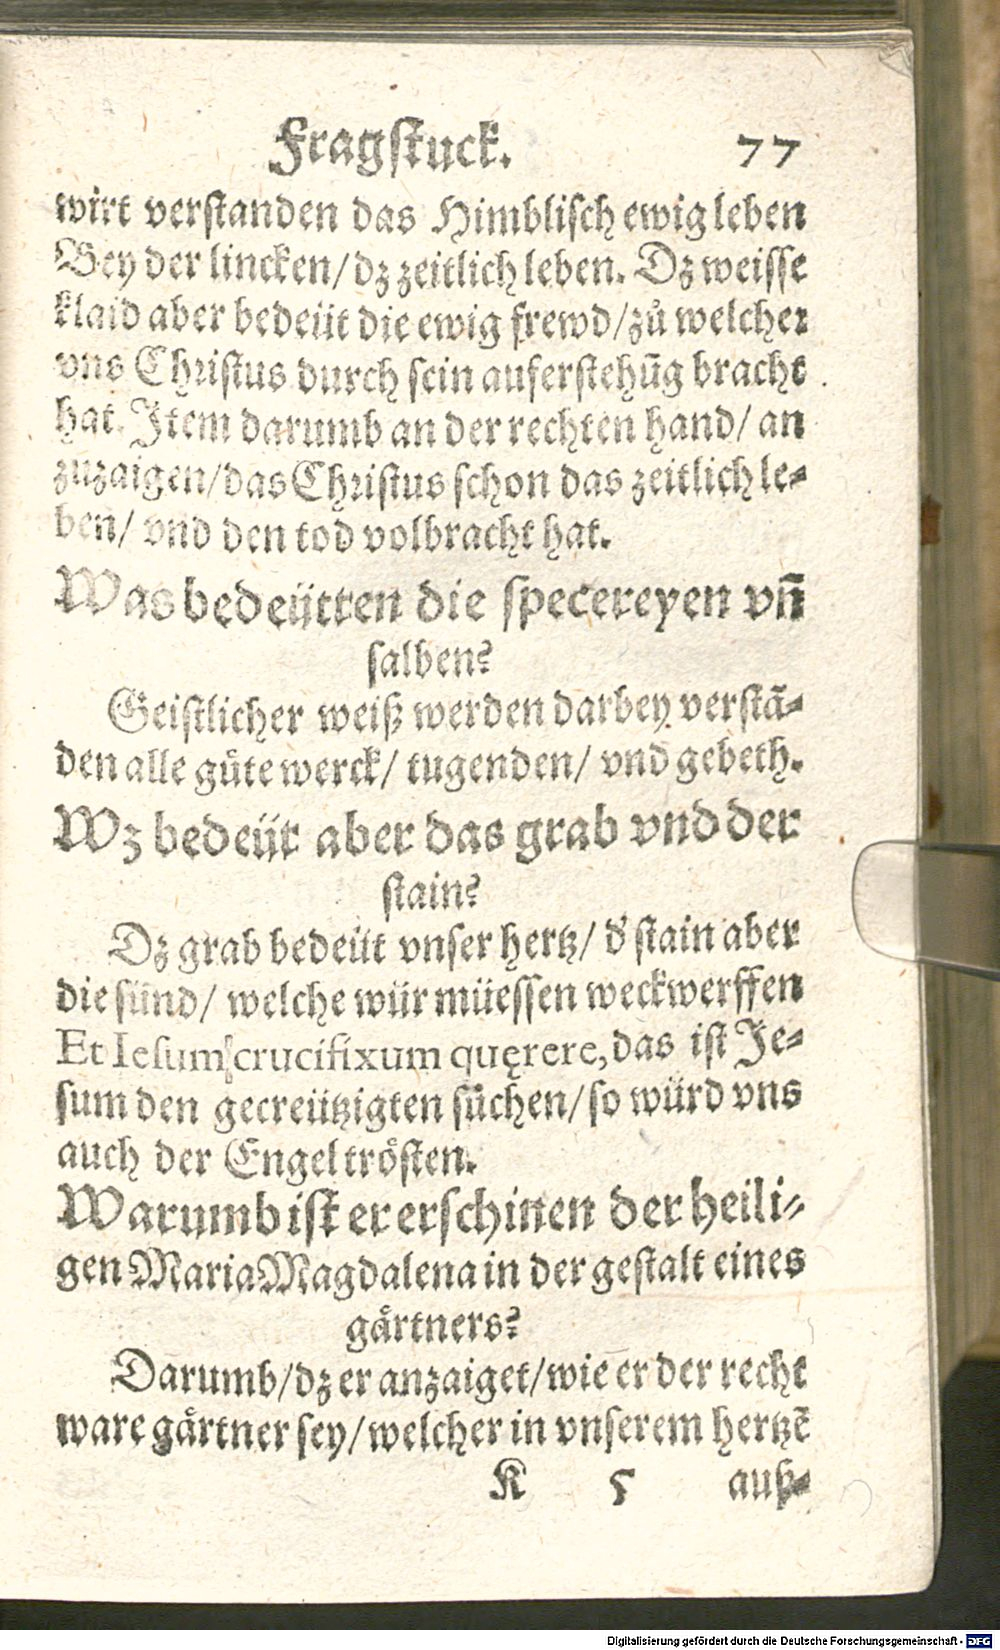 Fragstuck. 77
wirt verstanden das Himblisch ewig leben
Bey der lincken/ dz zeitlich leben. Dz weisse
klaid aber bedeüt die ewig frewd/ zů welcher
vns Christus durch sein auferstehūg bracht
hat. Item darumb an der rechten hand/ an
zuzaigen/ das Christus schon das zeitlich le⸗
ben/ vnd den tod volbracht hat.
Was bedeütten die specereyen vn̄
salben?
Geistlicher weiß werden darbey verstā⸗
den alle gůte werck/ tugenden/ vnd gebeth.
Wz bedeüt aber das grab vnd der
stain?
Dz grab bedeüt vnser hertz/ d' stain aber
die sünd/ welche wür müessen weckwerffen
Et Iesum crucifixum quęrere, das ist Je⸗
sum den gecreützigten sůchen/ so würd vns
auch der Engel trösten.
Warumb ist er erschinen der heili⸗
gen Maria Magdalena in der gestalt eines
gårtners?
Darumb/ dz er anzaiget/ wie er der recht
ware gårtner sey/ welcher in vnserem hertzē
K 5 auß⸗
Digitalisierung gefördert durch die Deutsche Forschungsgemeinschaft - DFG